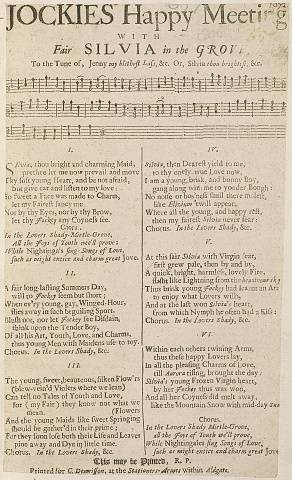 JOCKIES Happy Meeting
WITH
Fair SILVIA in the GROVE.
To the Tune of, Jenny my blithest Lass, &c. Or, Silvia thou brightest, &c.
I.
Silvia, thou bright and charming Maid,
prethee let me now prevail and move
Thy soft young Heart, and be not afraid,
but give ear and listen to my love:
So sweet a Face was made to Charm,
let my Fairest fancy me
Nor by thy Eyes, nor by thy Brow,
let thy Jockey any Coyness see.
Chorus.
In the Lovers Shady-Mirtle-Grove,
All the Joys of Youth we'll prove;
While Nightingals sing Songs of Love,
such as might entice and charm great Jove.
II.
A fair long-lasting Summers Day,
will to Jockey seem but short;
When ev'ry young gay, Winged-Hour,
flies away in such beguiling Sport.
Blush not, nor let Jockey see Disdain,
think upon the Tender Boy,
Of all his Art, Youth, Love, and Charms,
thus young Men with Maidens use to toy.
Chorus. In the Lovers Shady, &c.
III.
The young, sweet, beauteous, silken Flow'rs
(blew-vein'd Violets where we lean)
Can tell no Tales of Youth and Love,
for (my Fair) they know not what we
mean. (Flowers
And the young Maids like sweet Springing
should be gather'd in their prime;
For they soon lose both their Life and Leaves
pine away and Dye in little time.
Chorus. In the Lovers Shady, &c.
IV.
Silvia, then Dearest yield to me,
to thy constant true Love now,
I am a young, brisk, and bonny Boy,
gang along with me to yonder Bough:
No noise or business shall there molest,
like Elizium 'twill appear,
Where all the young, and happy rest,
then my fairest Soul never fear:
Chorus. In the Lovers Shady, &c.
V.
At this fair Silvia with Virgin fear,
first grew pale, then by and by,
A quick, bright, harmless, lovely Fire,
flasht like Lightning from the beauteous sky
Thus brisk young Jockey had learnt an Art
to enjoy what Lovers will,
And at the last won Silvia's heart,
from which Nymph he often had a Kiss:
Chorus. In the Lovers Shady, &c.
VI.
Within each others twining Arms,
thus these happy Lovers lay,
In all the pleasing Charms of Love,
till Aurora rising, brought the day:
Silvia's young Frozen Virgin heart,
by her Jockey thus was won,
And all her Coyness did melt away,
like the Mountain Snow with mid-day Sun
Chorus.
In the Lovers Shady Mirtle-Grove,
all the Joys of Youth we'll prove,
While Nightingales sing Songs of Love,
such as might entice and charm great Jove
This may be Printed, R. P.
Printed for C. Dennisson, at the Stationers-Armes within Aldgate.